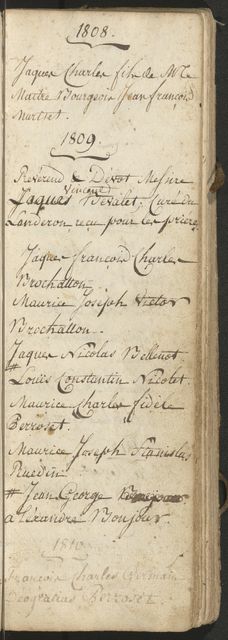 1808.
Jaques Charles fils de Mr. le
Maitre Bourgeois Jean françois
Murtset.
1809.
Reverend & Devot Messire
Vincent
Jaques Bevalet, Curé du
Landeron reçu pour les prieres
Jaques françois Charles
Brochatton
Maurice Joseph Victor
Brochatton.
Jaques Nicolas Bellenot
# Louis Constantin Nicolet.
Maurice Charles fidele
Perroset.
Maurice Joseph Stanislas
Ruedin
# Jean George
alexandre Bonjour
1810
François Charles Germain
Deogratias Perroset